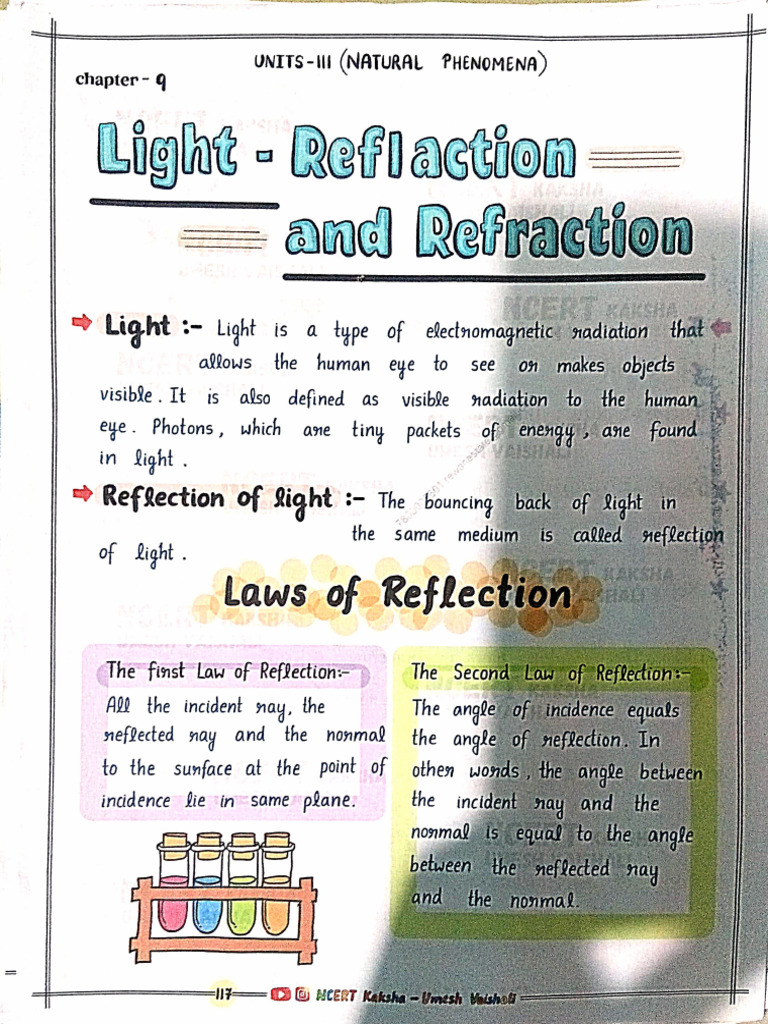 UNITS-III (NATURAL PHENOMENA)
chapter - 9
Light - Reflaction
and Refraction
Light :- Light is a type of electromagnetic radiation that
allows the human eye to see or makes objects
visible. It is also defined as visible radiation to the human
eye. Photons, which are tiny packets of energy, are found
in light.
Reflection of light :- The bouncing back of light in
the same medium is called reflection
of light.
Laws of Reflection
The first Law of Reflection:-
All the incident ray, the
reflected ray and the normal
to the surface at the point of
incidence lie in same plane.
The Second Law of Reflection:-
The angle of incidence equals
the angle of reflection. In
other words, the angle between
the incident ray and the
normal is equal to the angle
between the reflected ray
and the normal.
117
NCERT Kaksha - Umesh Vaishali